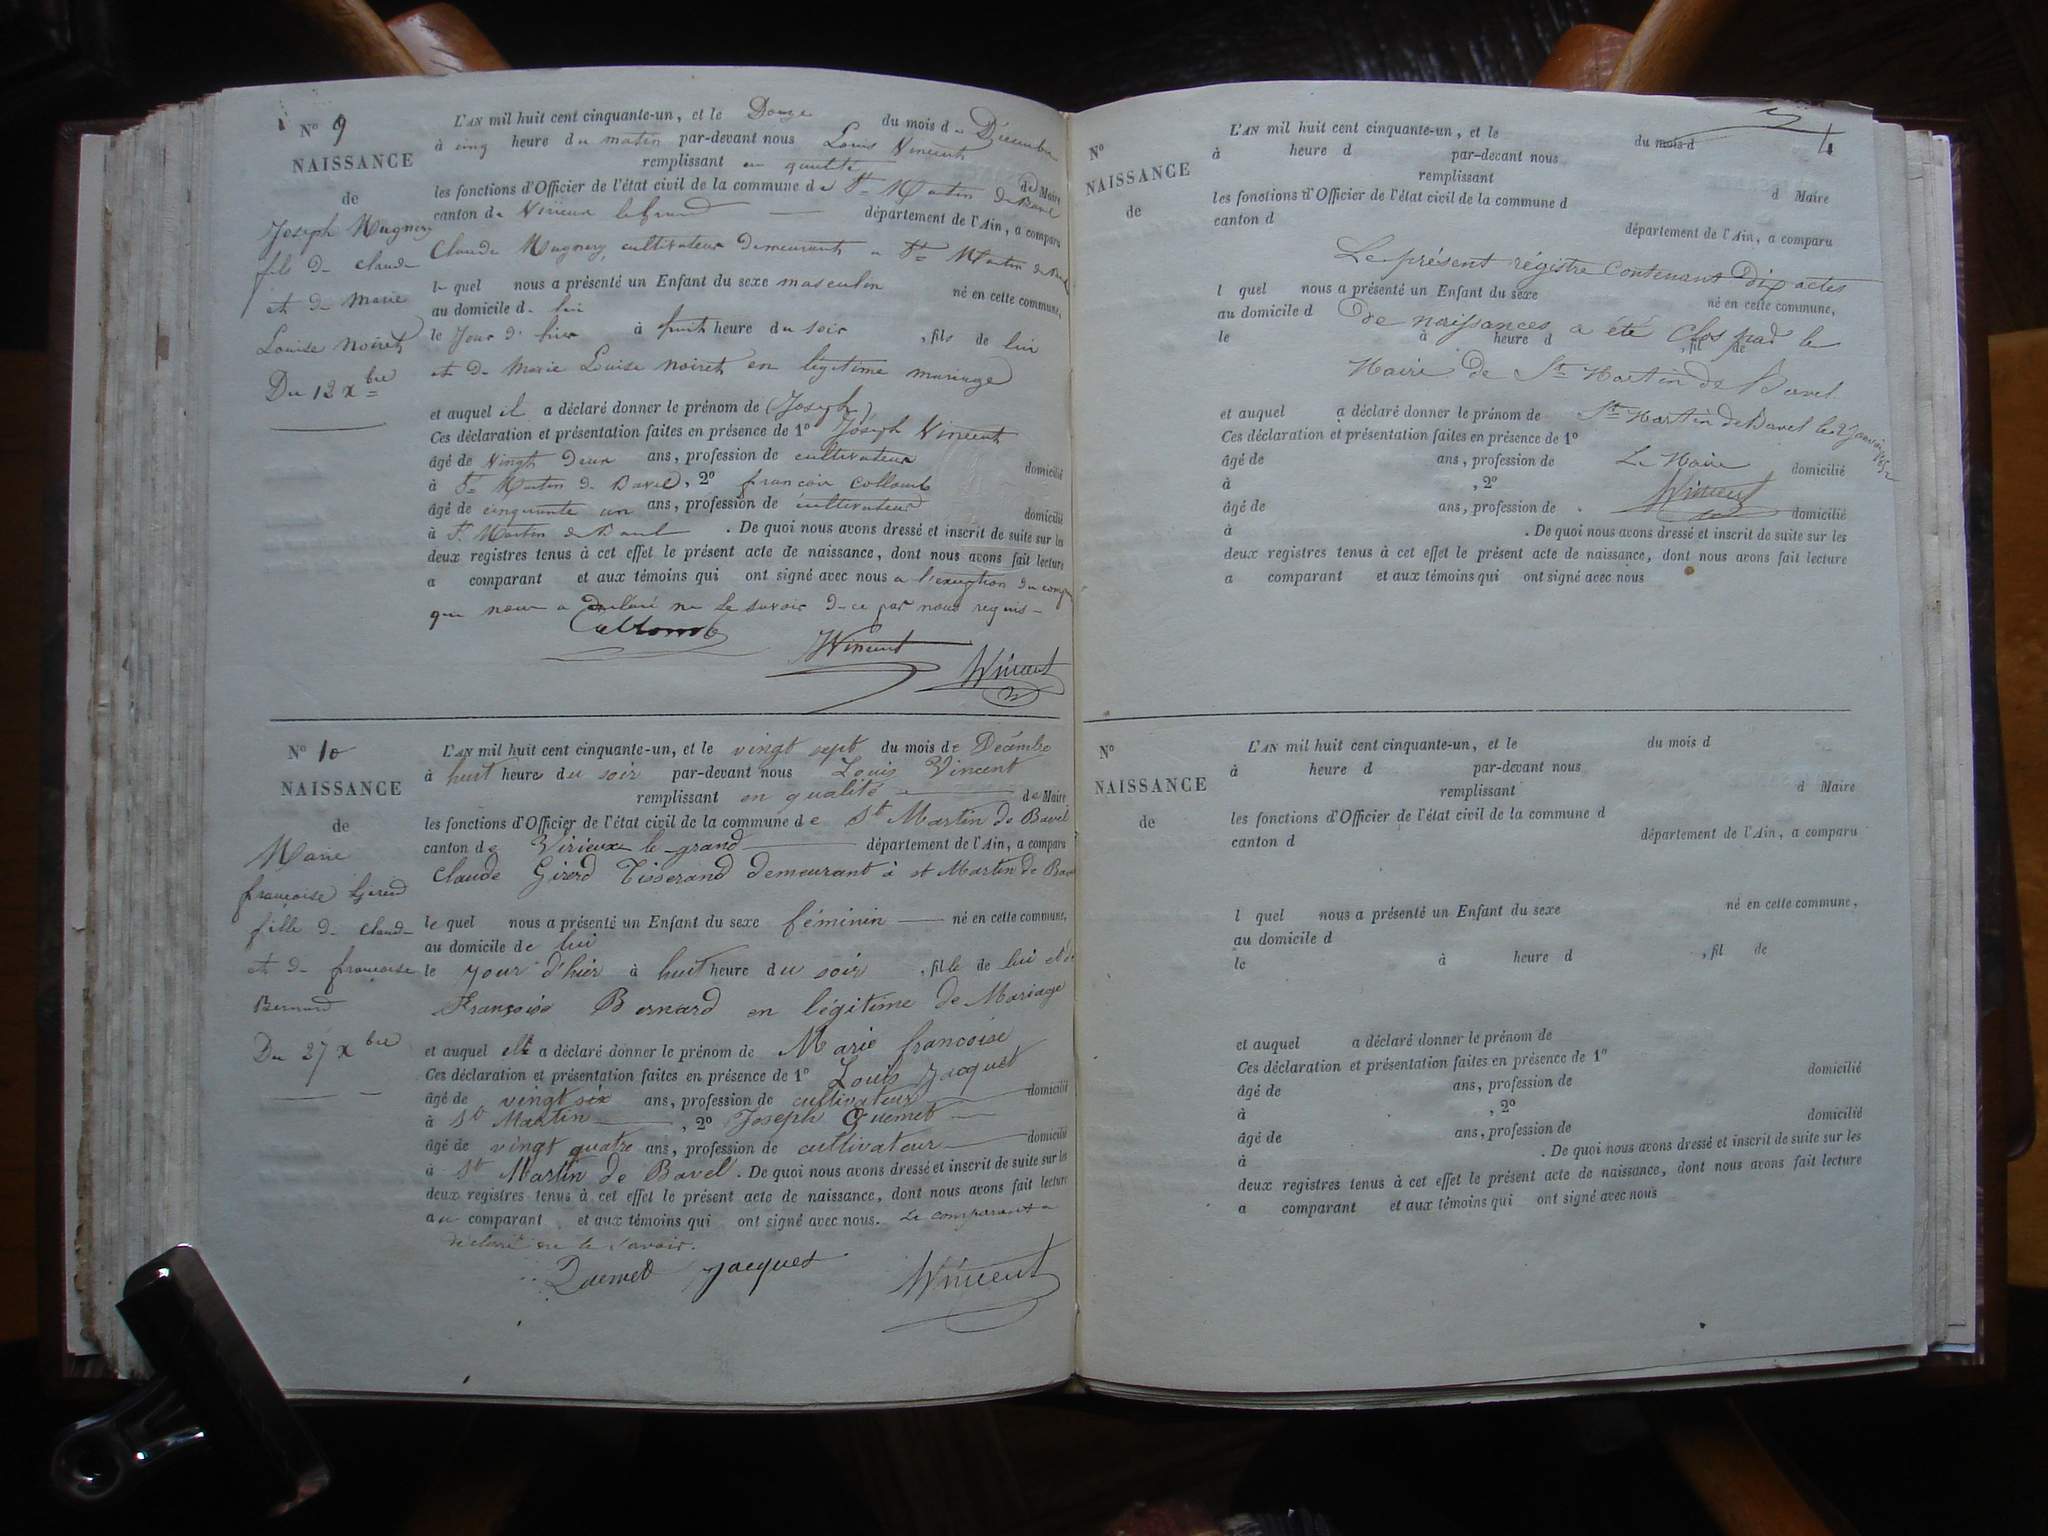 N° 9
NAISSANCE
de
Joseph Mugnery
fils de Claude
et de Marie
Louise Noiret
Du 12 Xbre
L'AN mil huit cent cinquante-un, et le Douze du mois de Décembre
à cinq heure du matin par-devant nous Louis Vincent
remplissant en qualité de Maire
les fonctions d'Officier de l'état civil de la commune de St Martin de Bavel
canton de Virieux le grand département de l'Ain, a comparu
Claude Mugnery, cultivateur demeurant a St Martin de Bavel
lequel nous a présenté un Enfant du sexe masculin né en cette commune,
au domicile de lui
le Jour d'hier à huit heure du soir, fils de lui
et de Marie Louise Noiret en légitime mariage
et auquel il a déclaré donner le prénom de (Joseph)
Ces déclaration et présentation faites en présence de 1° Joseph Vincent
âgé de Vingt deux ans, profession de cultivateur domicilié
à St Martin de Bavel, 2° francois Collomb
âgé de cinquante un ans, profession de cultivateur domicilié
à St Martin de Bavel. De quoi nous avons dressé et inscrit de suite sur les
deux registres tenus à cet effet le présent acte de naissance, dont nous avons fait lecture
a comparant et aux témoins qui ont signé avec nous a l'exeption du
qui nous a déclaré ne le savoir de ce par nous requis
Collomb
JVincent
Vincent
N° 10
NAISSANCE
de
Marie
françoise Girerd
fille de Claude
et de françoise
Bernard
Du 27 Xbre
L'AN mil huit cent cinquante-un, et le vingt sept du mois de Décembre
à huit heure du soir par-devant nous Louis Vincent
remplissant en qualité de Maire
les fonctions d'Officier de l'état civil de la commune de St Martin de Bavel
canton de Virieux le grand département de l'Ain, a comparu
Claude Girerd Tisserand demeurant à st Martin de Bavel
lequel nous a présenté un Enfant du sexe féminin né en cette commune,
au domicile de lui
le jour d'hier à huit heure du soir, fille de lui et de
Françoise Bernard en légitime de Mariage
et auquel elle a déclaré donner le prénom de Marie francoise
Ces déclaration et présentation faites en présence de 1° Louis Jacquet
âgé de vingt six ans, profession de cultivateur domicilié
à St Martin, 2° Joseph Quemet
âgé de vingt quatre ans, profession de cultivateur domicilié
à St Martin de Bavel. De quoi nous avons dressé et inscrit de suite sur les
deux registres tenus à cet effet le présent acte de naissance, dont nous avons fait lecture
au comparant et aux témoins qui ont signé avec nous. Le comparant a
déclaré ne le savoir.
Quemet Jacquet
Vincent
4
N°
NAISSANCE
de
L'AN mil huit cent cinquante-un, et le du mois d
à heure d par-devant nous
remplissant d Maire
les fonctions d'Officier de l'état civil de la commune d
canton d département de l'Ain, a comparu
Le présent régistre contenant Dix actes
l quel nous a présenté un Enfant du sexe né en cette commune,
au domicile d
De naissances a été Clos par le
le à heure d, fil de
Maire de St Martin de Bavel
et auquel a déclaré donner le prénom de
St Martin de Bavel le 2 Janvier 1852
Ces déclaration et présentation faites en présence de 1°
âgé de ans, profession de domicilié
Le Maire
à, 2°
Vincent
âgé de ans, profession de domicilié
à. De quoi nous avons dressé et inscrit de suite sur les
deux registres tenus à cet effet le présent acte de naissance, dont nous avons fait lecture
a comparant et aux témoins qui ont signé avec nous
N°
NAISSANCE
de
L'AN mil huit cent cinquante-un, et le du mois d
à heure d par-devant nous
remplissant d Maire
les fonctions d'Officier de l'état civil de la commune d
canton d département de l'Ain, a comparu
l quel nous a présenté un Enfant du sexe né en cette commune,
au domicile d
le à heure d, fil de
et auquel a déclaré donner le prénom de
Ces déclaration et présentation faites en présence de 1°
âgé de ans, profession de domicilié
à, 2°
âgé de ans, profession de domicilié
à. De quoi nous avons dressé et inscrit de suite sur les
deux registres tenus à cet effet le présent acte de naissance, dont nous avons fait lecture
a comparant et aux témoins qui ont signé avec nous